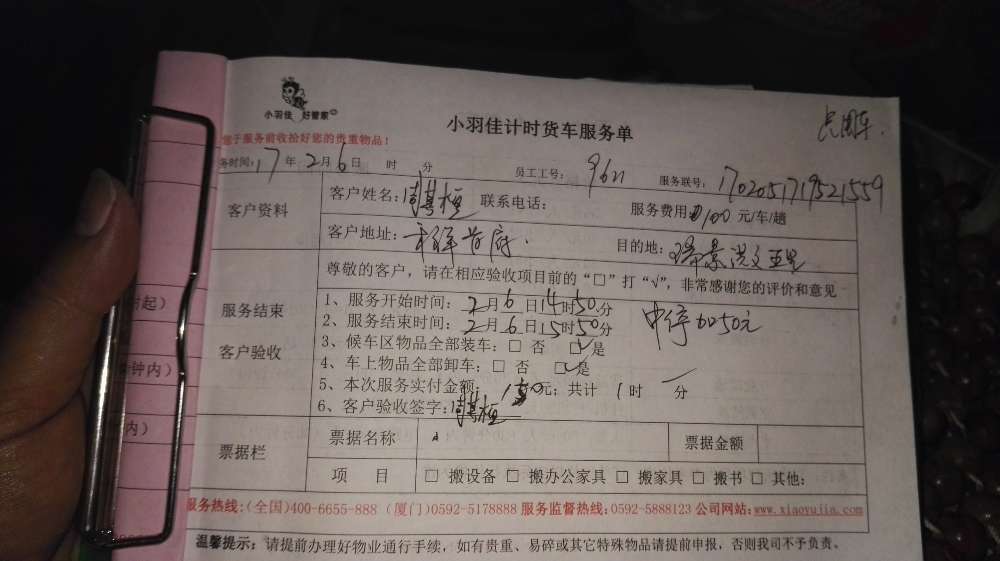 小羽佳 好管家
小羽佳计时货车服务单
您于服务前收拾好您的贵重物品!
务时间: 17 年 2 月 6 日 时 分 员工工号: 9621 服务联号: 1702051719521559
客户资料
客户姓名: 联系电话: 服务费用 100 元/车/趟
客户地址: 禾祥首府. 目的地: 瑞景洪文五里
尊敬的客户，请在相应验收项目前的“□”打“√”，非常感谢您的评价和意见
服务结束
客户验收
1、服务开始时间: 2月6日14时50分
2、服务结束时间: 2月6日15时50分
中停加50元
3、候车区物品全部装车: □ 否 ☑ 是
4、车上物品全部卸车: □ 否 ☑ 是
5、本次服务实付金额: 元; 共计 1 时 分
6、客户验收签字:
票据栏
票据名称 票据金额
项 目 □ 搬设备 □ 搬办公家具 □ 搬家具 □ 搬书 □ 其他:
服务热线:(全国)400-6655-888 (厦门)0592-5178888 服务监督热线:0592-5888123 公司网站:www.xiaoyujia.com
温馨提示: 请提前办理好物业通行手续，如有贵重、易碎或其它特殊物品请提前申报，否则我司不予负责。
时起)
钟内)
内)